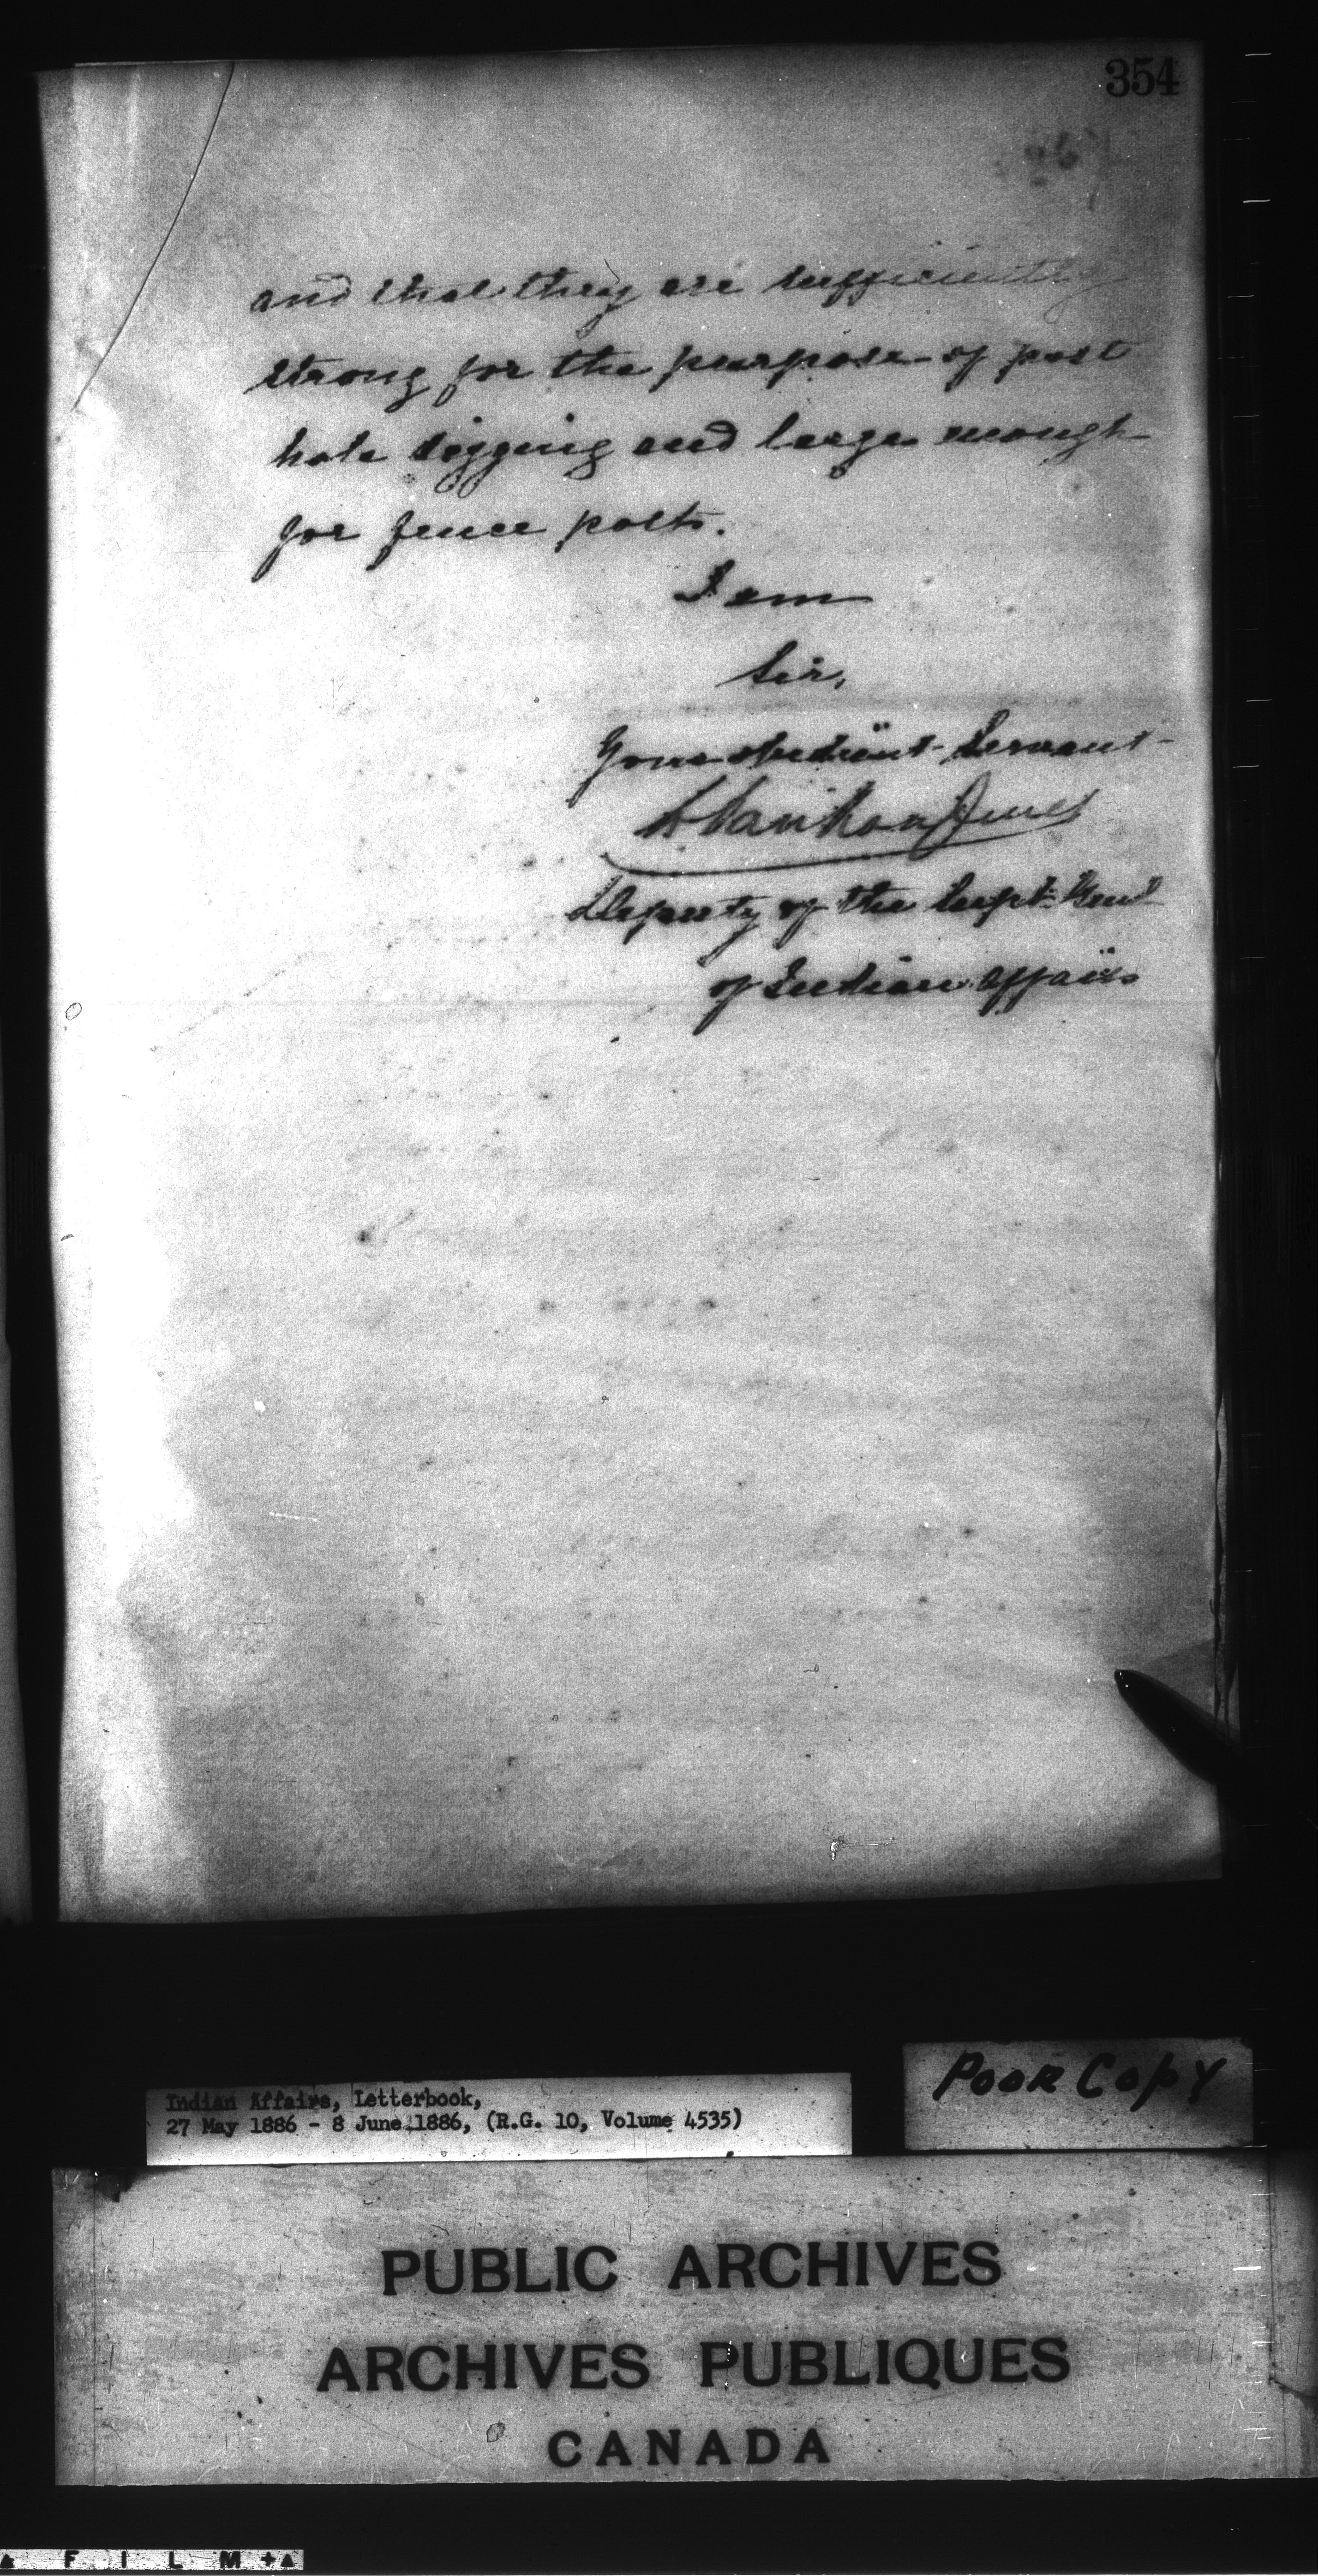 354
and that they are sufficiently
strong for the purpose of post
hole digging and large enough
for fence posts.
I am
Sir,
Your obedient Servant
L Vankoughnet
Deputy of the Supt. Genl
of Indian Affairs
Indian Affairs, Letterbook,
27 May 1886 - 8 June 1886, (R.G. 10, Volume 4535)
POOR COPY
PUBLIC ARCHIVES
ARCHIVES PUBLIQUES
CANADA
FILM